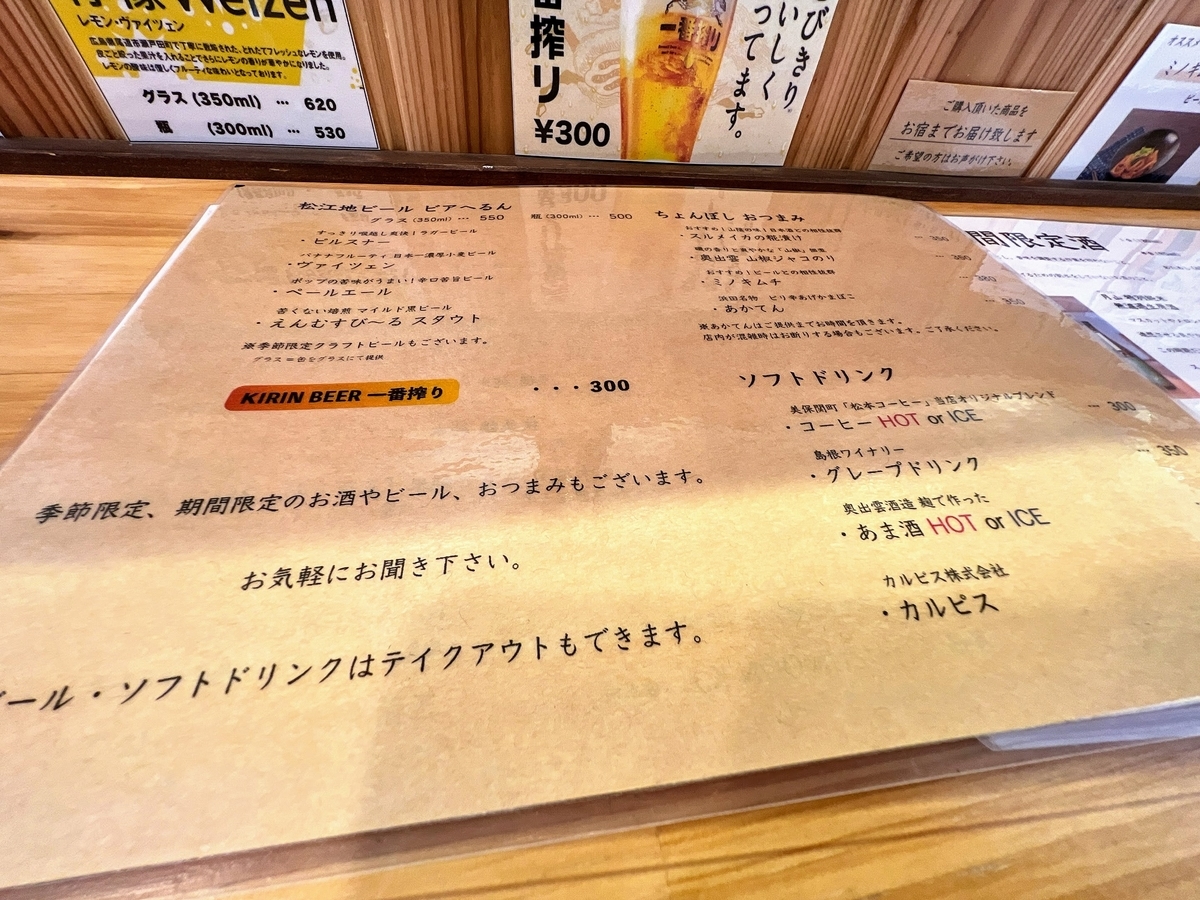 Weizen
レモン・ヴァイツェン
グラス (350ml) … 620
瓶 (300ml) … 530
搾り
¥300
ご購入頂いた商品を
お宿までお届け致します
ご希望の方はお声がけ下さい。
松江地ビール ビアへるん
グラス (350ml) … 550 瓶 (300ml) … 500
すっきり喉越し爽快!ラガービール
・ピルスナー
バナナフルーティ 日本一濃厚小麦ビール
・ヴァイツェン
ホップの苦味がうまい!辛口苦旨ビール
・ペールエール
苦くない焙煎 マイルド黒ビール
・えんむすびーる スタウト
※季節限定クラフトビールもございます。
グラス=缶をグラスにて提供
KIRIN BEER 一番搾り ・・・300
季節限定、期間限定のお酒やビール、おつまみもございます。
お気軽にお聞き下さい。
ール・ソフトドリンクはテイクアウトもできます。
ちょんぼし おつまみ
おすすめ!山陰の味!日本酒との相性抜群
・スルメイカの糀漬け … 350
・奥出雲 山椒ジャコのり … 380
おすすめ!ビールとの相性抜群
・ミノキムチ … 380
浜田名物 ピリ辛あげかまぼこ
・あかてん … 350
※あかてんはご提供までお時間を頂きます。
店内が混雑時はお断りする場合もございます。ご了承ください。
ソフトドリンク
美保関町「松本コーヒー」当店オリジナルブレンド
・コーヒー HOT or ICE … 300
島根ワイナリー
・グレープドリンク … 350
奥出雲酒造 麹で作った
・あま酒 HOT or ICE
カルピス株式会社
・カルピス
間限定酒